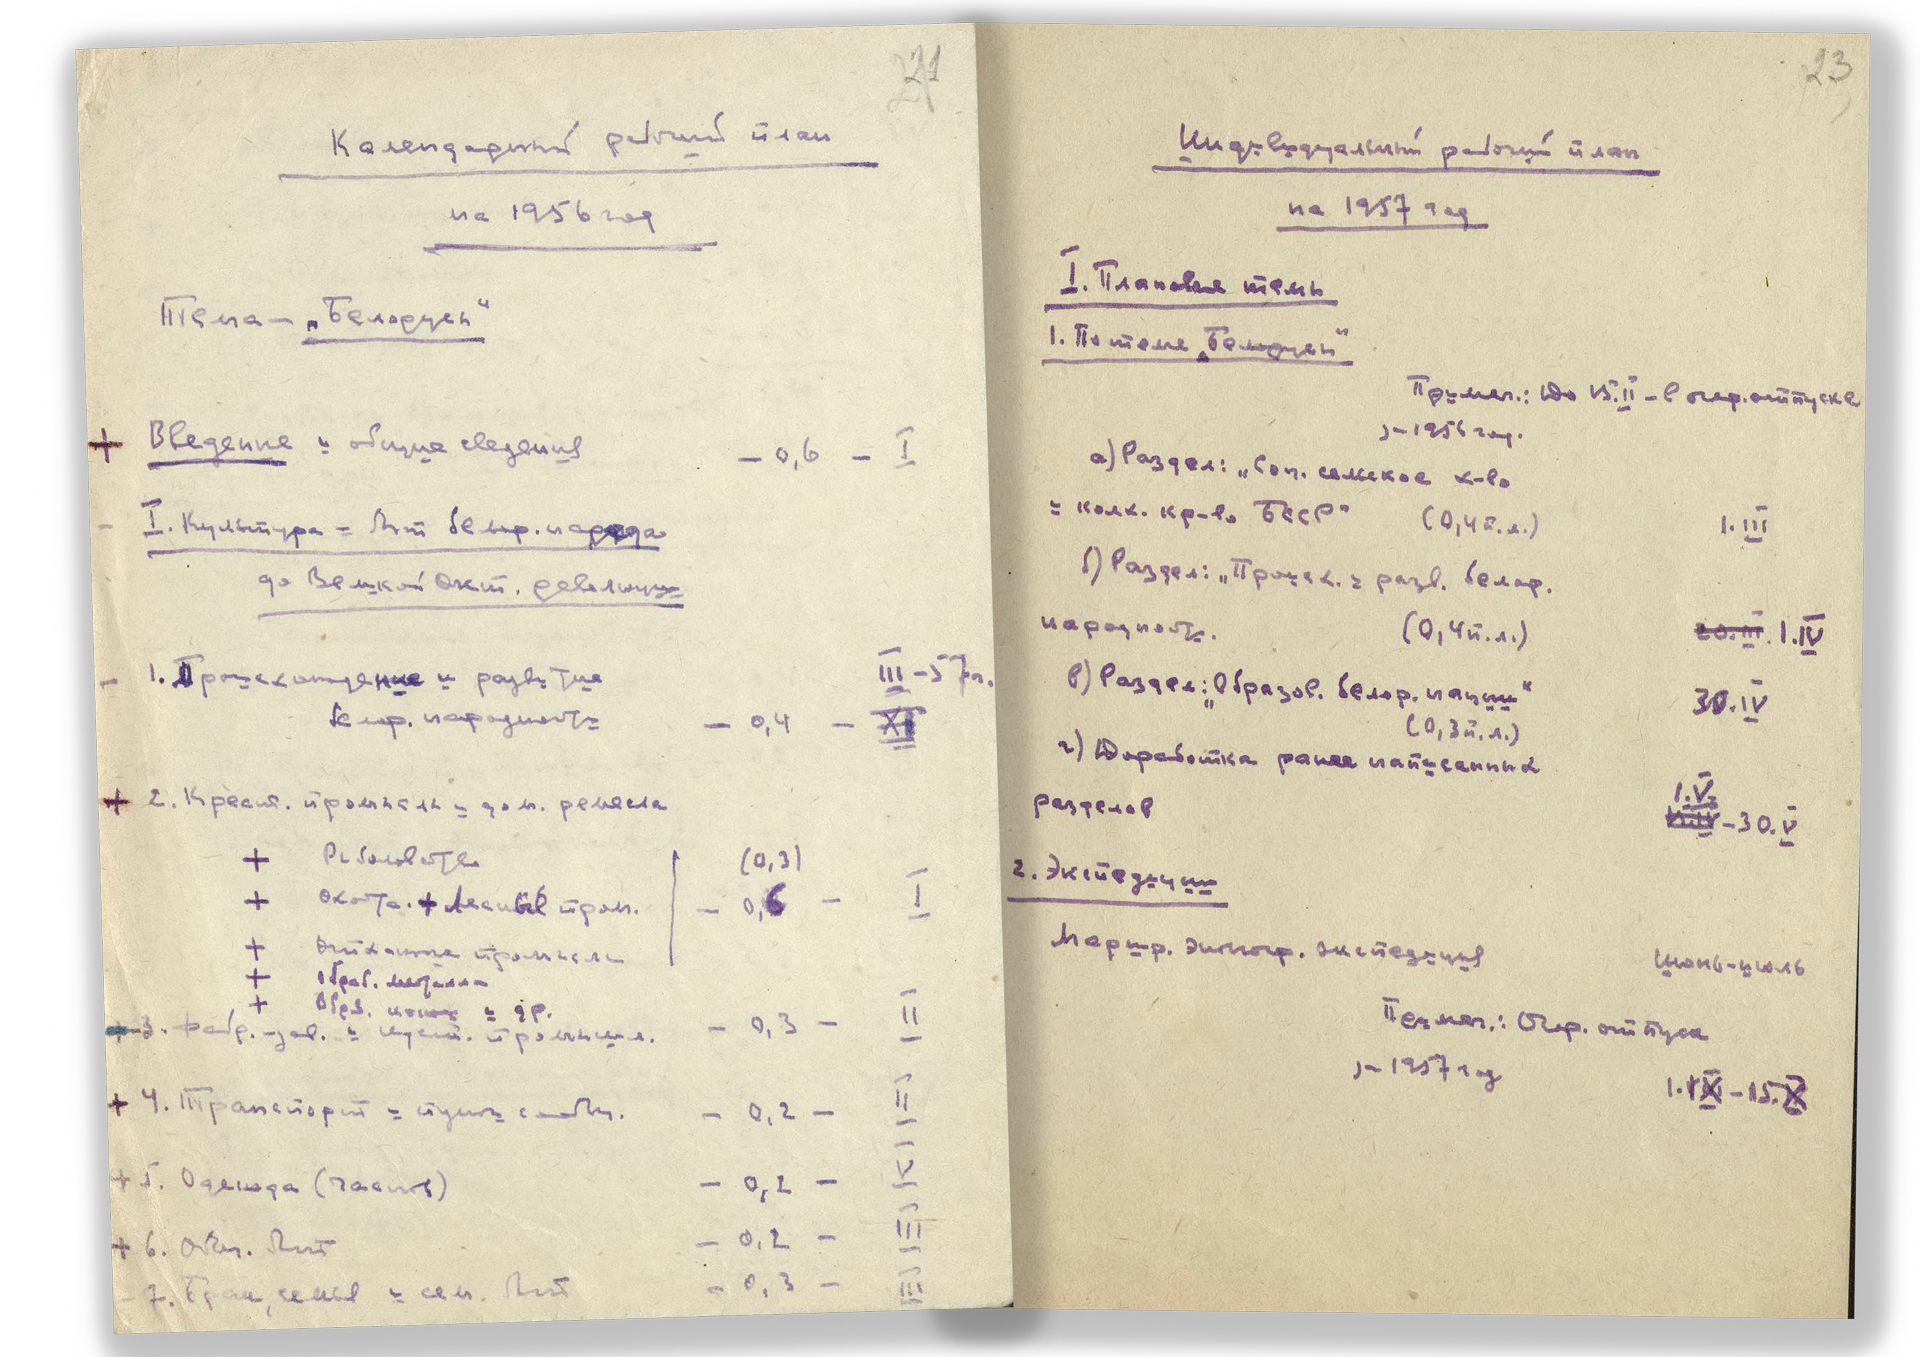 21
Календарный рабочий план
на 1956 год
Тема – „Белорусы"
+ Введение и общие сведения – 0,6 – I
– I. Культура и быт белор. народа
до Великой Окт. революции
– 1. Происхождение и развитие III – 57 г.
белор. народности – 0,4 – XII
+ 2. Крест. промыслы и дом. ремесла
+ Рыболовство (0,3)
+ Охота. + лесные пром. – 0,6 – I
+ Отхожие промыслы
+ Обраб. металла
+ Обраб. кожи и др.
+ 3. Фабр.-зав. и куст. промышл. – 0,3 – II
+ 4. Транспорт и пути сообщ. – 0,2 – II
+ 5. Одежда (часть) – 0,2 –
+ 6. Общ. быт – 0,2 – III
– 7. Брак, семья и сем. быт – 0,3 – III
23
Индивидуальный рабочий план
на 1957 год
I. Плановые темы
1. По теме „Белорусы"
Примеч.: До 15.II – в очер. отпуске
за 1956 год.
а) Раздел: „Соц. сельское х-во
и колх. кр-во БССР" (0,4 п.л.) 1.III
б) Раздел: „Происх. и разв. белор.
народности. (0,4 п.л.) 20.III. 1.IV
в) Раздел: „Образов. белор. нации" 30.IV
(0,3 п.л.)
г) Доработка ранее написанных
разделов 1.V. – 30.V
2. Экспедиции
Маршр. этногр. экспедиция июнь-июль
Примеч.: Очер. отпуск
за 1957 год 1.IX – 15.X